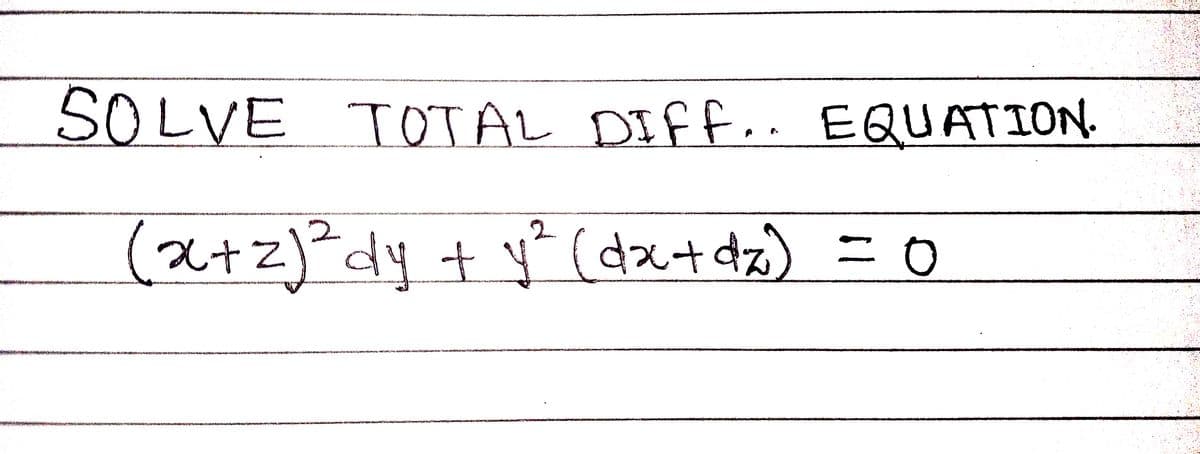 SOLVE TOTAL DIFF.. EQUATION.
(x+z)² dy + y² (dx+dz) = 0